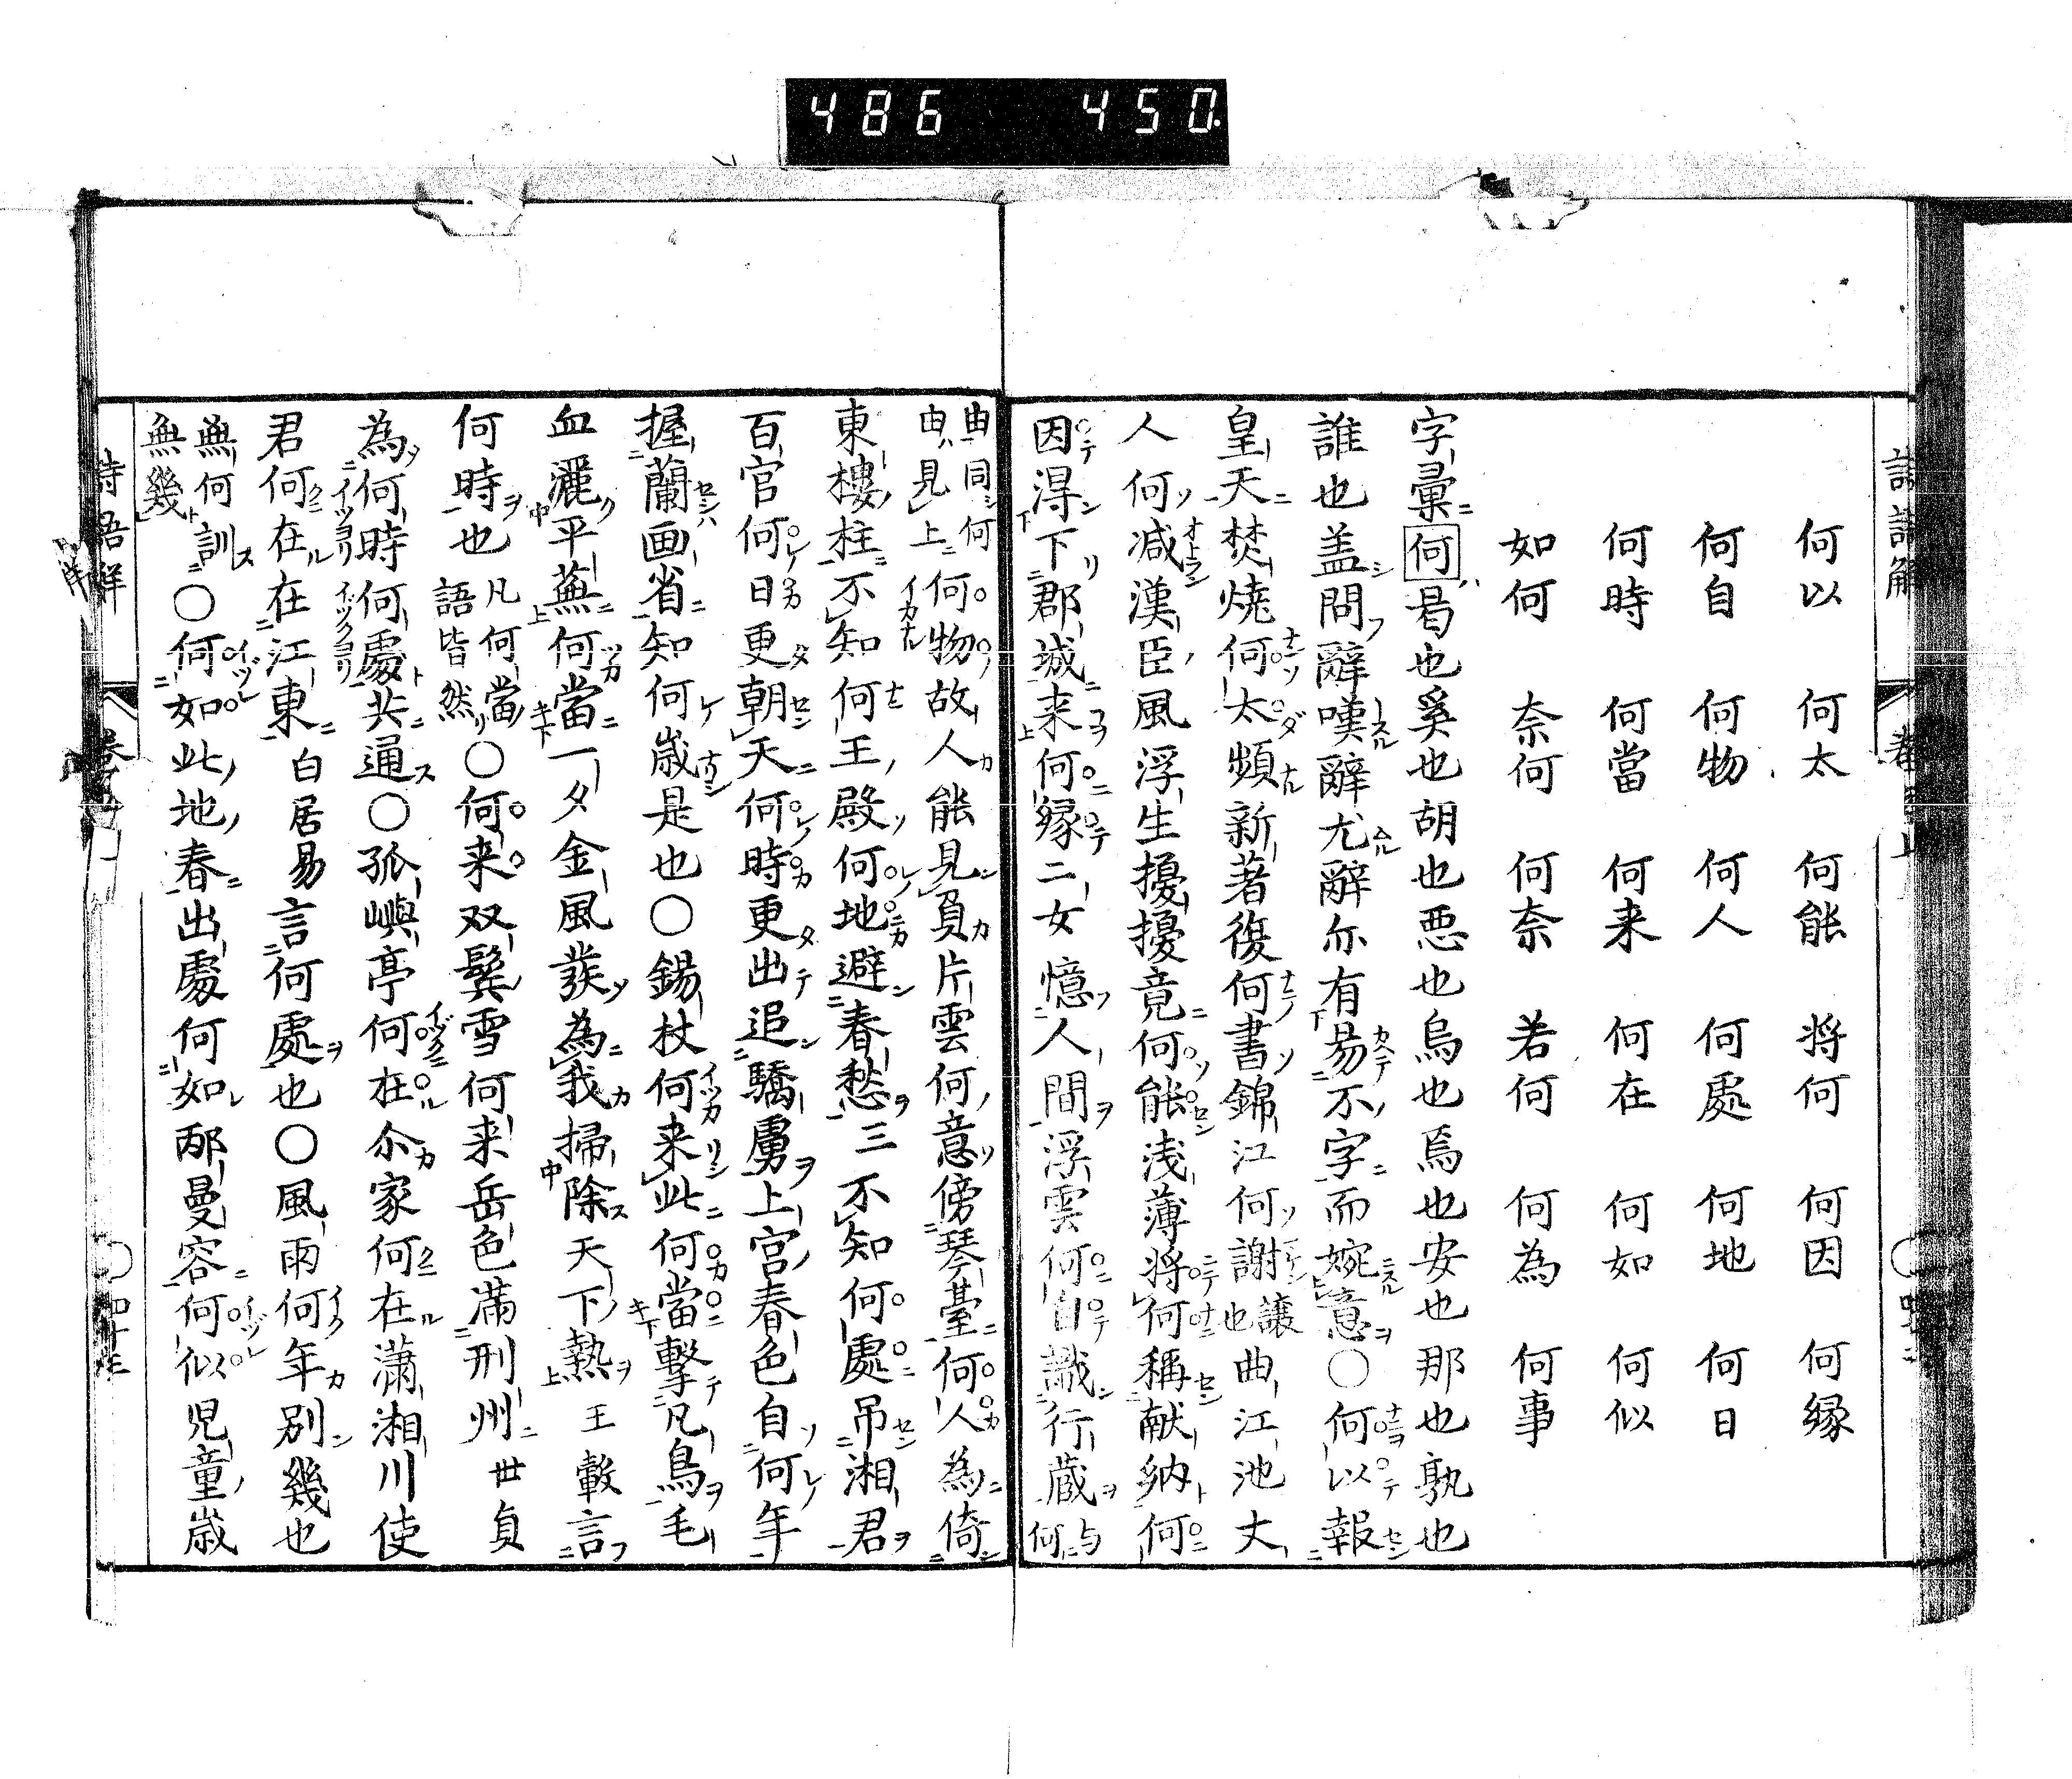 486 450
何以 何太 何能 将何 何因 何縁
何自 何物 何人 何處 何地 何日
何時 何當 何来 何在 何如 何似
如何 奈何 何奈 若何 何為 何事
字彙何曷也奚也胡也悪也烏也焉也安也那也孰也
誰也盖問辭嘆辭尤辭亦有易不字而婉意〇何以報
皇天焚焼何太頻新著復何書錦江何謝譲也曲江池丈
人何减漢臣風浮生擾擾竟何能浅薄将何稱献納何
因得下郡城来何縁二女憶人間浮雲何自識行蔵与何
由同何由見上何物故人能見負片雲何意傍琴臺何人為倚
東樓柱不知何王殿何地避春愁三不知何處吊湘君
百官何日更朝天何時更出追驕虜上宮春色自何年
握蘭画省知何歳是也〇錫杖何来此何當撃凡鳥毛
血灑平蕪何當一夕金風發為我掃除天下熱王轂言
何時也凡何當語皆然〇何来双鬂雪何来岳色満刑州世貞
為何時何處共通〇孤嶼亭何在尒家何在瀟湘川使
君何在在江東白居易言何處也〇風雨何年別幾也
無何訓無幾〇何如此地春出處何如邴曼容何似児童歳
詩語解